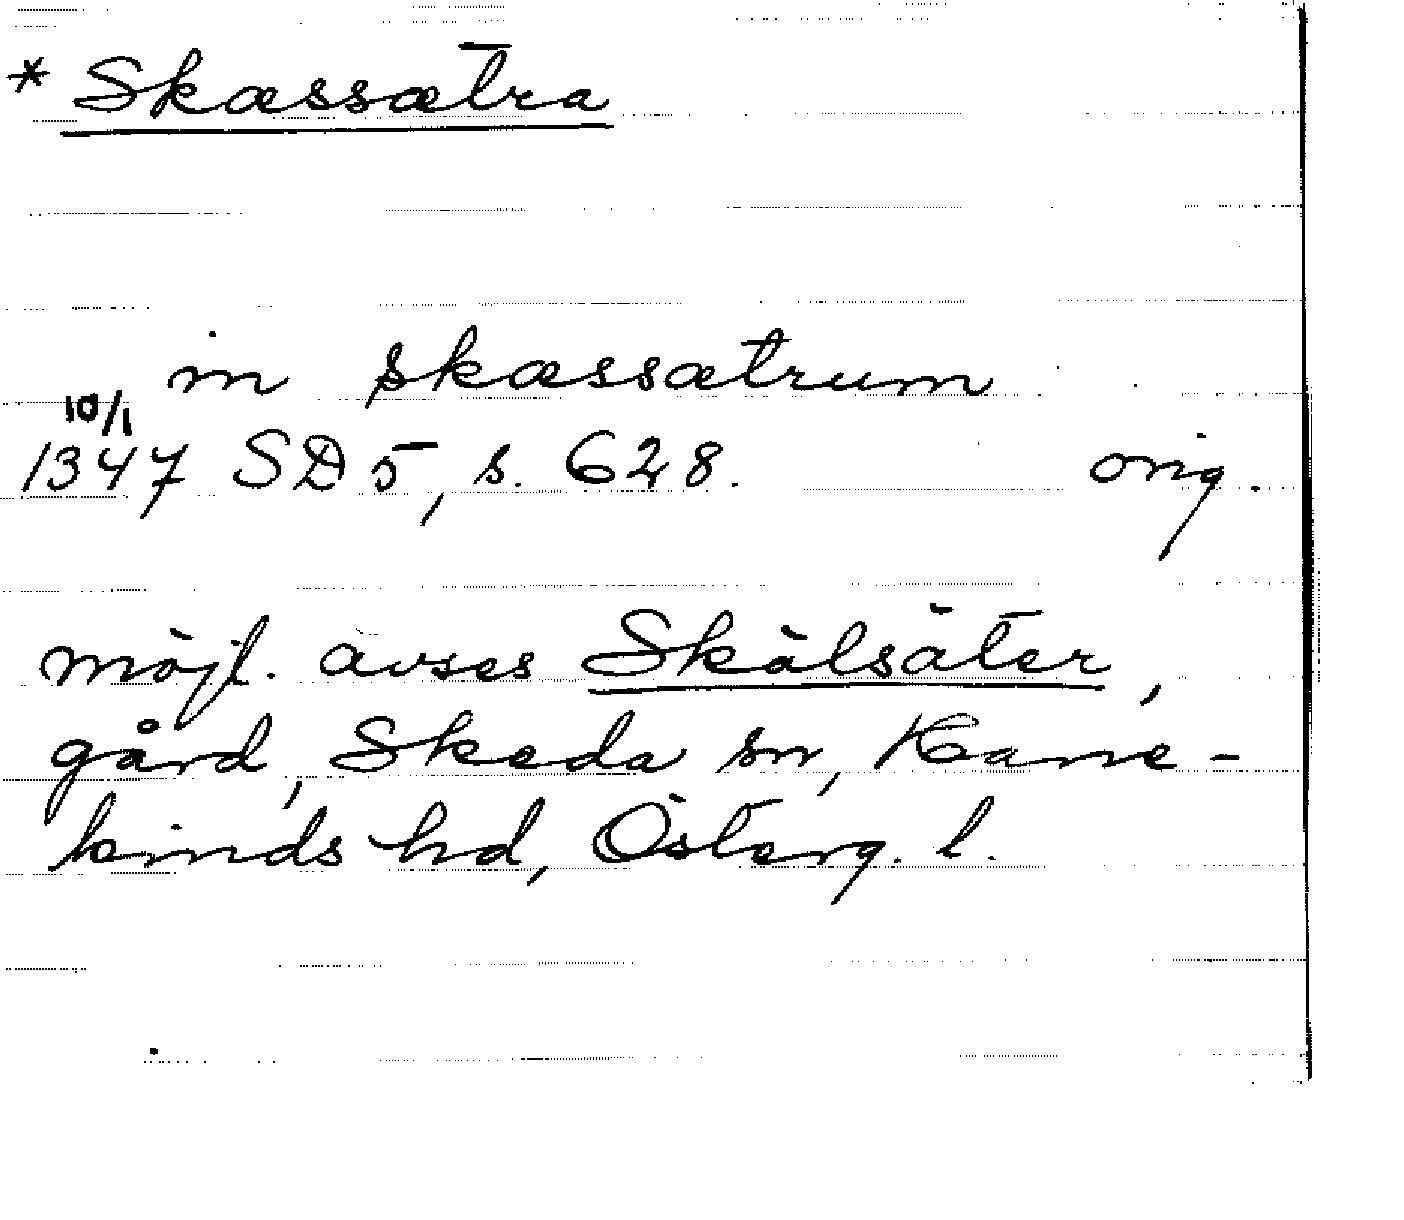 * Skæssætra
in skæssætrum
10/1
1347 SD 5, s. 628. orig.
möjl. avses Skälsäter,
gård, Skeda sn, Hane-
kinds hd, Österg. l.